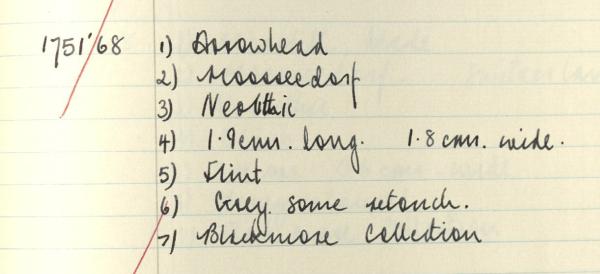 1751'68 1) Arrowhead
2) Moosseedorf
3) Neolithic
4) 1.9cms. long. 1.8cms. wide.
5) Flint
6) Grey. some retouch.
7) Blackmore Collection